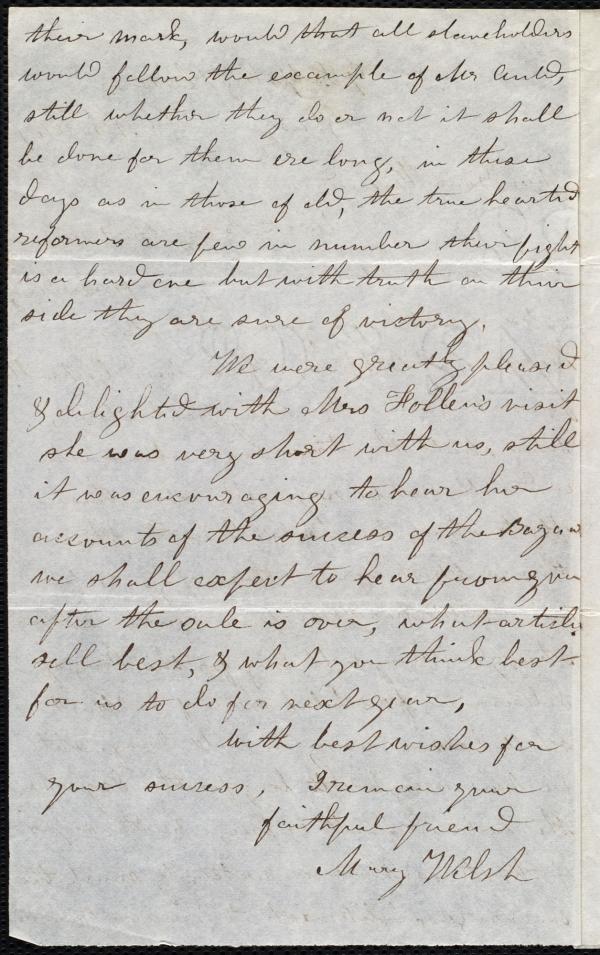 their mark, would that all slaveholders
would follow the example of Mr Auld,
still whether they do or not it shall
be done for them ere long, in these
days as in those of old, the true hearted
reformers are few in number their fight
is a hard one but with truth on their
side they are sure of victory.
We were greatly pleased
& delighted with Mrs Follen's visit
she was very short with us, still
it was encouraging to hear her
accounts of the success of the Bazaar
we shall expect to hear from you
after the sale is over, what articles
sell best, & what you think best
for us to do for next year,
with best wishes for
your success, I remain your
faithful friend
Mary Welsh